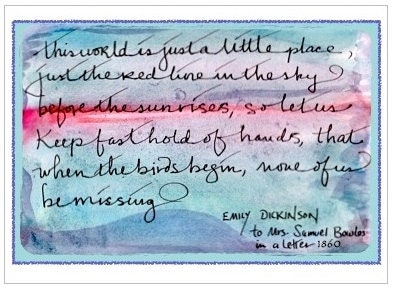 this world is just a little place,
just the red line in the sky
before the sun rises, so let us
Keep fast hold of hands, that
when the birds begin, none of us
be missing
EMILY DICKINSON
to Mrs. Samuel Bowles
in a letter 1860